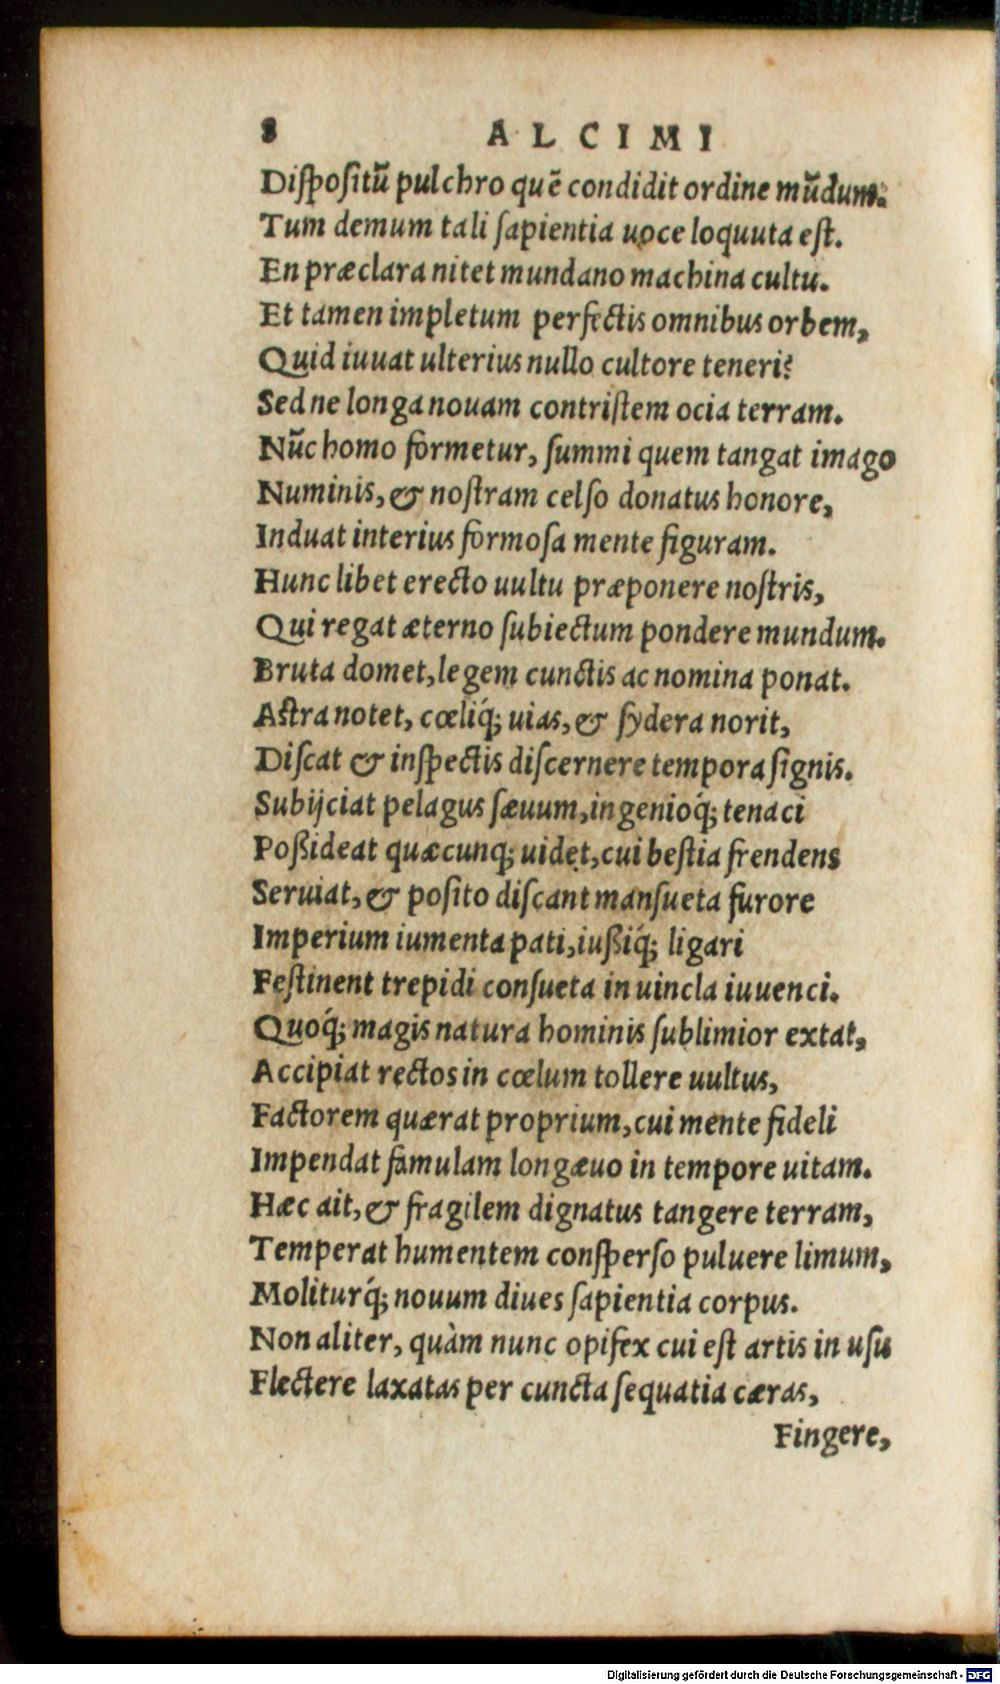 8 ALCIMI
Diſpoſitū pulchro quē condidit ordine mūdum.
Tum demum tali ſapientia uoce loquuta eſt.
En præclara nitet mundano machina cultu.
Et tamen impletum perfectis omnibus orbem,
Quid iuuat ulterius nullo cultore teneri?
Sed ne longa nouam contriſtem ocia terram.
Nūc homo formetur, ſummi quem tangat imago
Numinis, & noſtram celſo donatus honore,
Induat interius formoſa mente figuram.
Hunc libet erecto uultu præponere noſtris,
Qui regat æterno ſubiectum pondere mundum.
Bruta domet, legem cunctis ac nomina ponat.
Aſtra notet, cœliq́; uias, & ſydera norit,
Diſcat & inſpectis diſcernere tempora ſignis.
Subijciat pelagus ſæuum, ingenioq́; tenaci
Poßideat quæcunq; uidet, cui beſtia frendens
Seruiat, & poſito diſcant manſueta furore
Imperium iumenta pati, iußiq́; ligari
Feſtinent trepidi conſueta in uincla iuuenci.
Quoq́; magis natura hominis ſublimior extat,
Accipiat rectos in cœlum tollere uultus,
Factorem quærat proprium, cui mente fideli
Impendat famulam longæuo in tempore uitam.
Hæc ait, & fragilem dignatus tangere terram,
Temperat humentem conſperſo puluere limum,
Moliturq́; nouum diues ſapientia corpus.
Non aliter, quàm nunc opifex cui eſt artis in uſu
Flectere laxatas per cuncta ſequatia cæras,
Fingere,
Digitalisierung gefördert durch die Deutsche Forschungsgemeinschaft - DFG